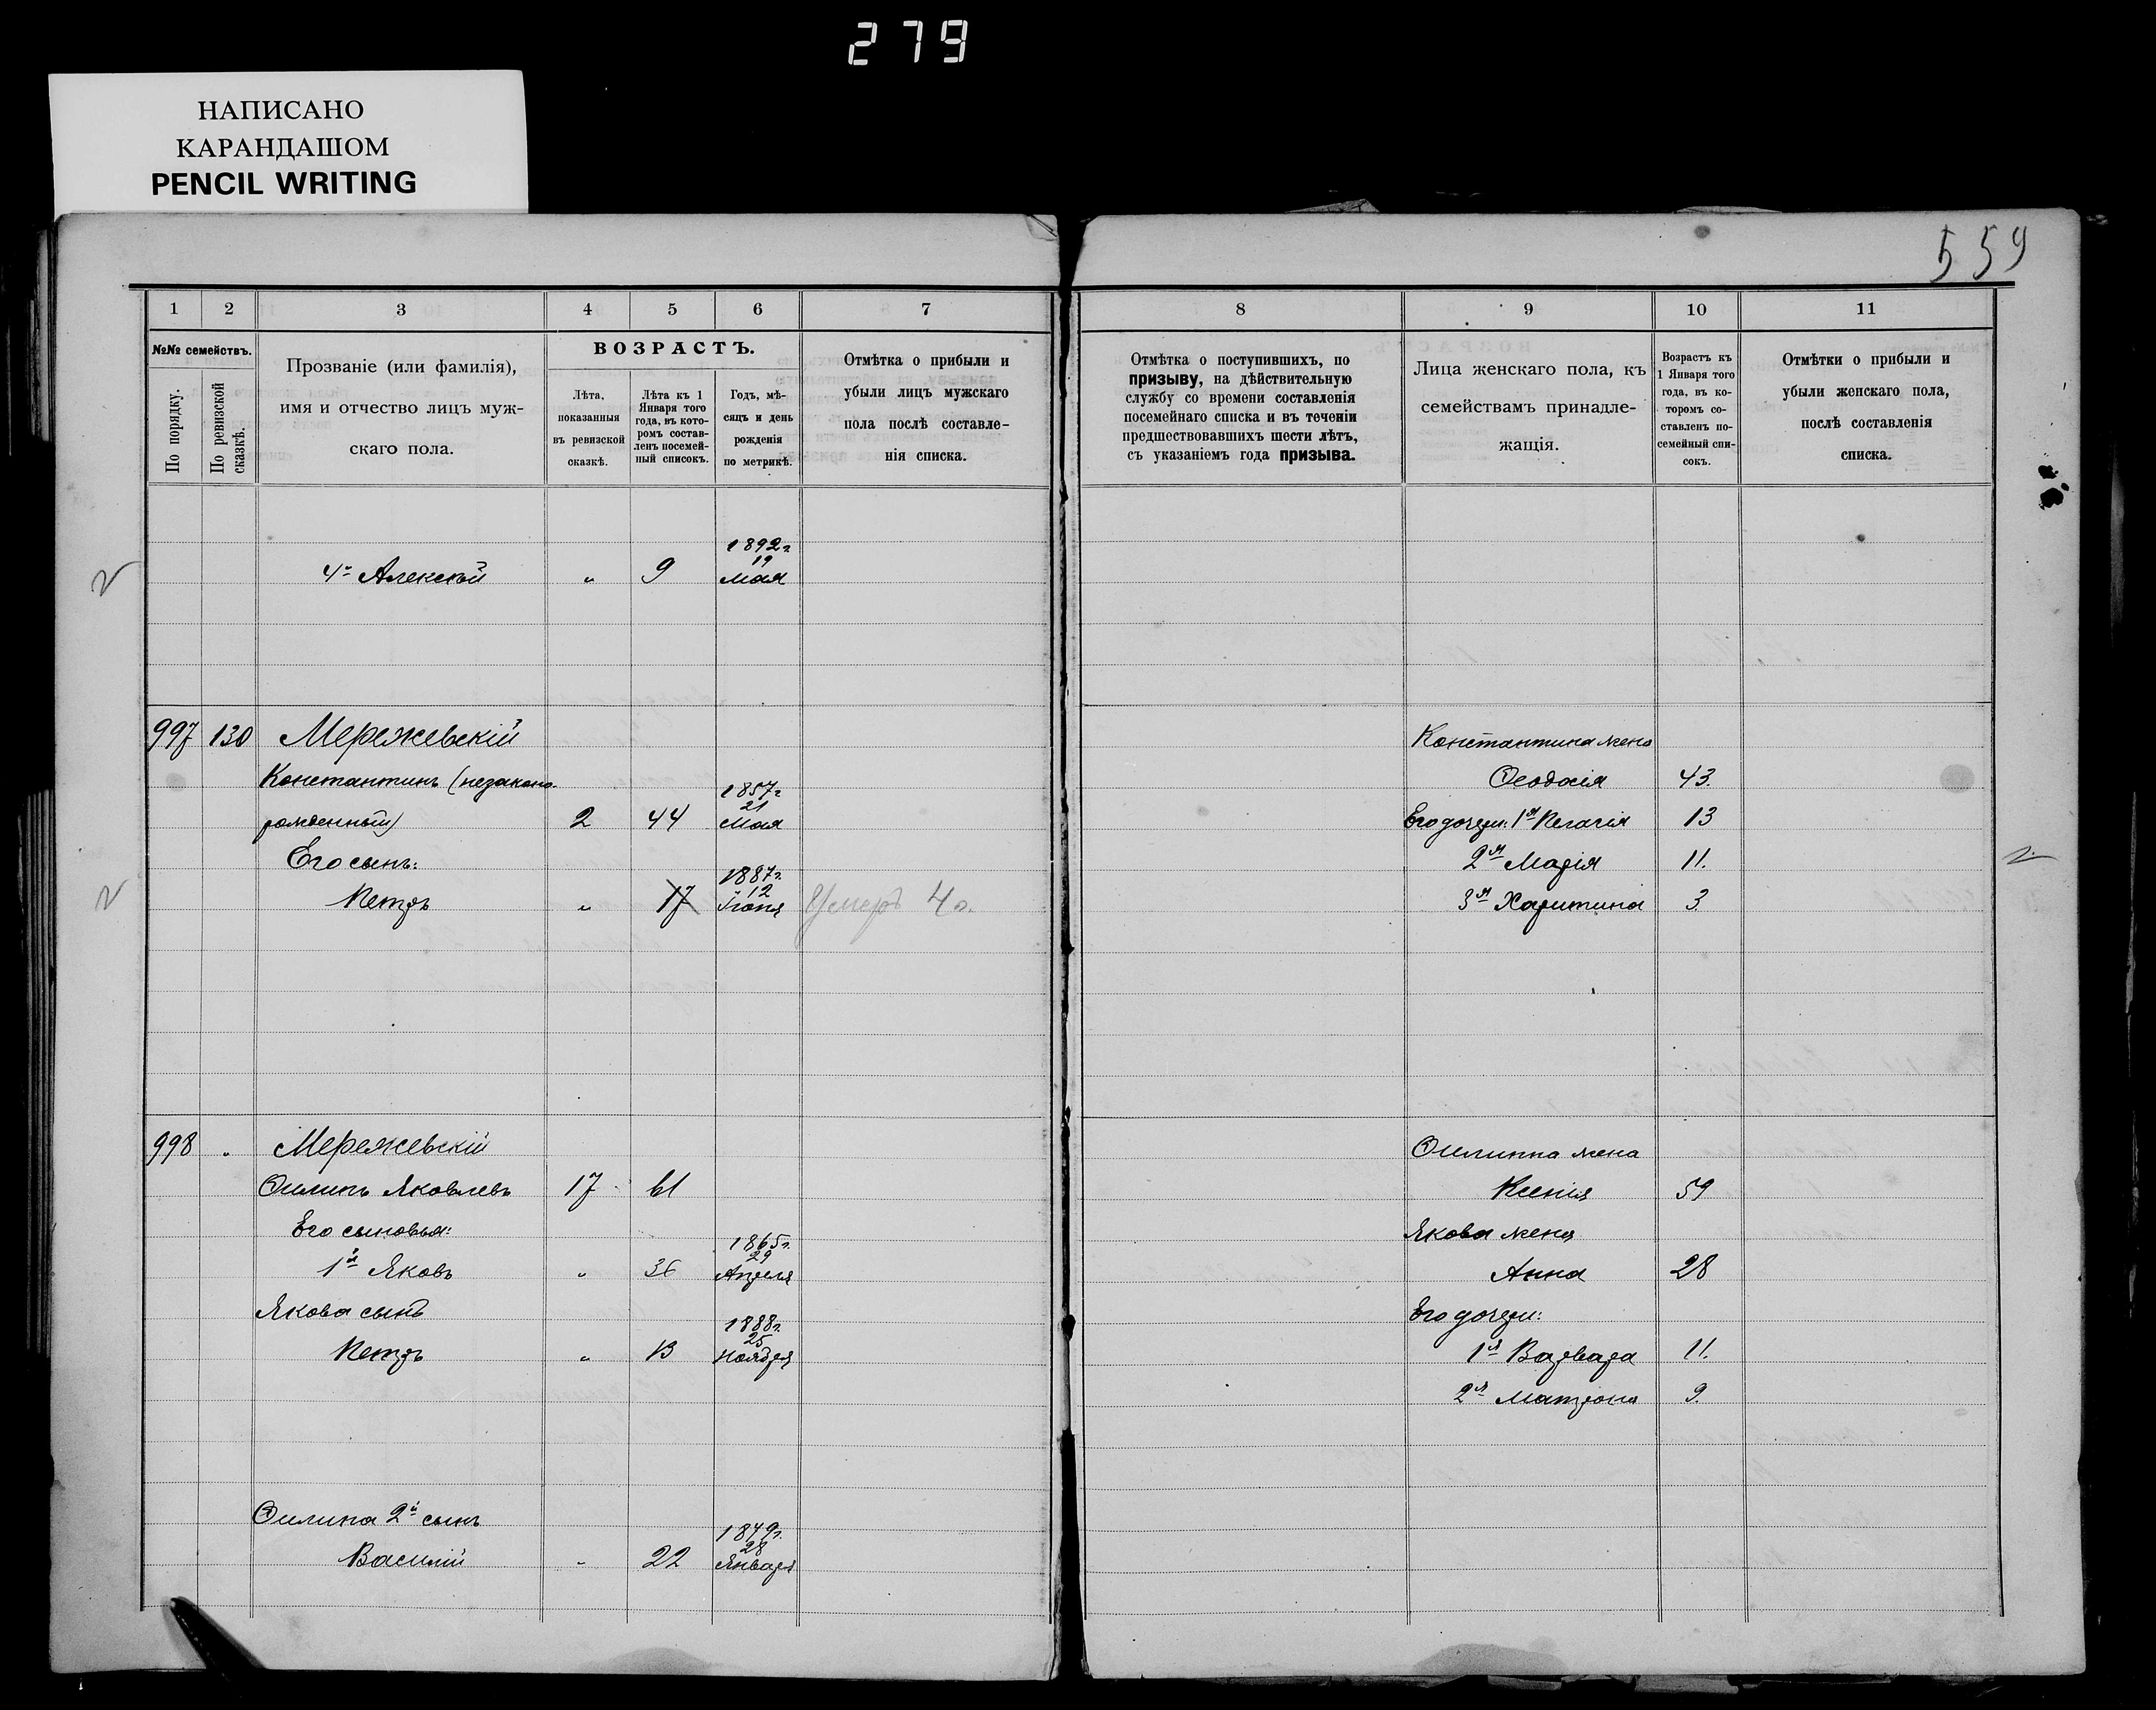 279
НАПИСАНО
КАРАНДАШОМ
PENCIL WRITING
559
1 2 3 4 5 6 7
№№ семействъ.
По порядку.
По ревизской сказкѣ.
Прозваніе (или фамилія),
имя и отчество лицъ муж-
скаго пола.
ВОЗРАСТЪ.
Лѣта,
показанныя
въ ревизской
сказкѣ.
Лѣта къ 1
Января того
года, въ кото-
ромъ состав-
ленъ посемей-
ный списокъ.
Годъ, мѣ-
сяцъ и день
рожденія
по метрикѣ.
Отмѣтка о прибыли и
убыли лицъ мужскаго
пола послѣ составле-
нія списка.
1892 г.
19
4й Алексѣй " 9 Мая
997 130 Мережевскій
Константинъ (незаконо-
1857 г.
21
рожденный) 2 44 Мая
Его сынъ:
1887 г.
12
Петръ " 17 Іюня Умеръ 4 г.
998 " Мережевскій
Ѳилипъ Яковлевъ 17 61
Его сыновья:
1865 г.
29
1й Яковъ " 36 Апреля
Якова сынъ
1888 г.
25
Петръ " 13 Ноября
Ѳилипа 2й сынъ
1879 г.
28
Василій " 22 Января
8 9 10 11
Отмѣтка о поступившихъ, по
призыву, на дѣйствительную
службу со времени составленія
посемейнаго списка и въ теченіи
предшествовавшихъ шести лѣтъ,
съ указаніемъ года призыва.
Лица женскаго пола, къ
семействамъ принадле-
жащія.
Возрастъ къ
1 Января того
года, въ ко-
торомъ со-
ставленъ по-
семейный спи-
сокъ.
Отмѣтки о прибыли и
убыли женскаго пола,
послѣ составленія
списка.
Константина жена
Ѳеодосія 43.
Его дочери: 1я Пелагія 13
2я Марія 11.
3я Харитина 3
Ѳилиппа жена
Ксенія 59
Якова жена
Анна 28
Его дочери:
1я Варвара 11.
2я Матрона 9.